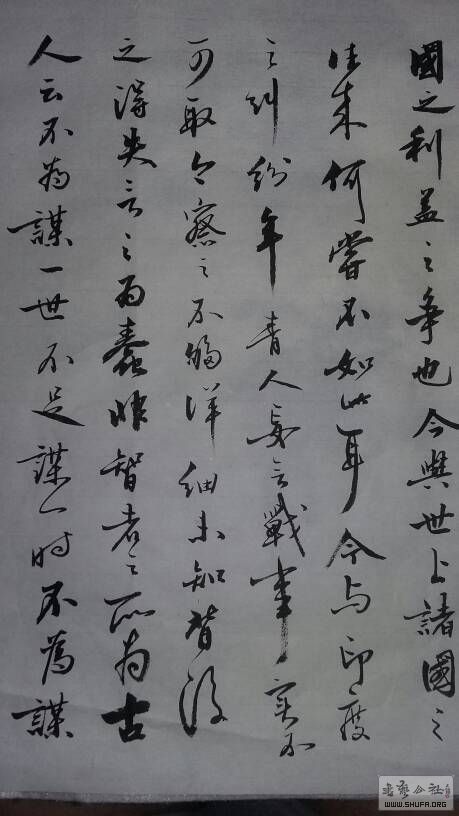 國之利益之爭也今與世上諸國之
往來何嘗不如此耳今与印度
之糾紛年青人妄言戰事实不
可取今察之不够详細未知背后
之得失言之為蠢非智者之所为古
人云不為謀一世不足謀一时不為謀
書藝公社
WWW.SHUFA.ORG